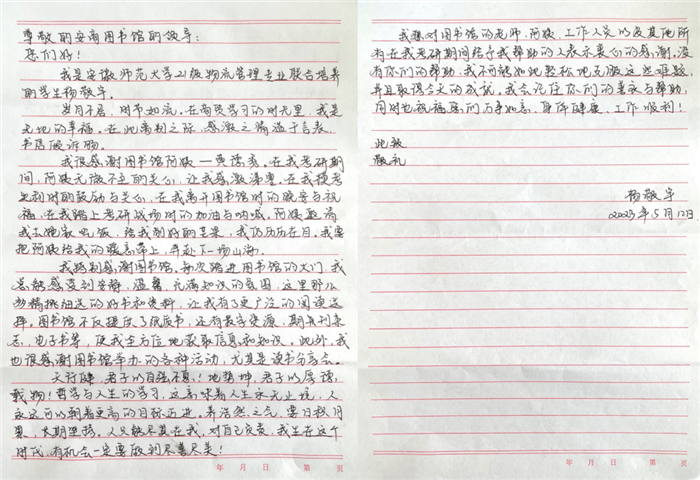 尊敬的安商图书馆的领导：
您们好！
我是安徽师范大学21级物流管理专业联合培养
的学生杨敬宇。
岁月不居，时节如流。在商院学习的时光里，我是
无比的幸福。在此离别之际，感激之情溢于言表，
书信破诉物。
我很感谢图书馆阿姨一
在我考研期
间，阿姨无微不至的关心，让我感激涕零。在我模考
失利时的鼓励与关心，在我离开图书馆时的晚安与祝
福，在我踏上考研战场时的加油与呐喊。阿姨邀请
我去她家吃饭，给我削好的苹果，我仍历历在目。我要
把阿姨给我的暖意带上，奔赴下一场山海。
我特别感谢图书馆。每次踏进图书馆的大门，我
总能感受到安静，温馨，充满知识的氛围，这里那么
多精挑细选的好书和资料，让我有了更广泛的阅读选
择。图书馆不仅提供了纸质书，还有数字资源，期刊杂
志，电子书等，使我全方位地获取信息和知识。此外，我
也很感谢图书馆举办的各种活动，尤其是读书分享会。
天行健，君子以自强不息！地势坤，君子以厚德
载物！哲学与人生的学习，这意味着人生永无止境，人
永远可以朝着更高的目标迈进，养浩然之气，需日积月
累，长期坚持。人只能尽其在我，对自己负责，我生在这个
时代，有机会一定要做到尽善尽美！
年 月 日 第 页
我想对图书馆的老师，阿姨，工作人员以及其他所
有在我考研期间给予我帮助的人表示衷心的感谢，没
有你们的帮助，我不可能如此轻松地克服这些难题
并且取得今天的成就。我会记住你们的善良与帮助，
同时也祝福您们万事如意，身体健康，工作顺利！
此致
敬礼
杨敬宇
2023年5月12日
年 月 日 第 页